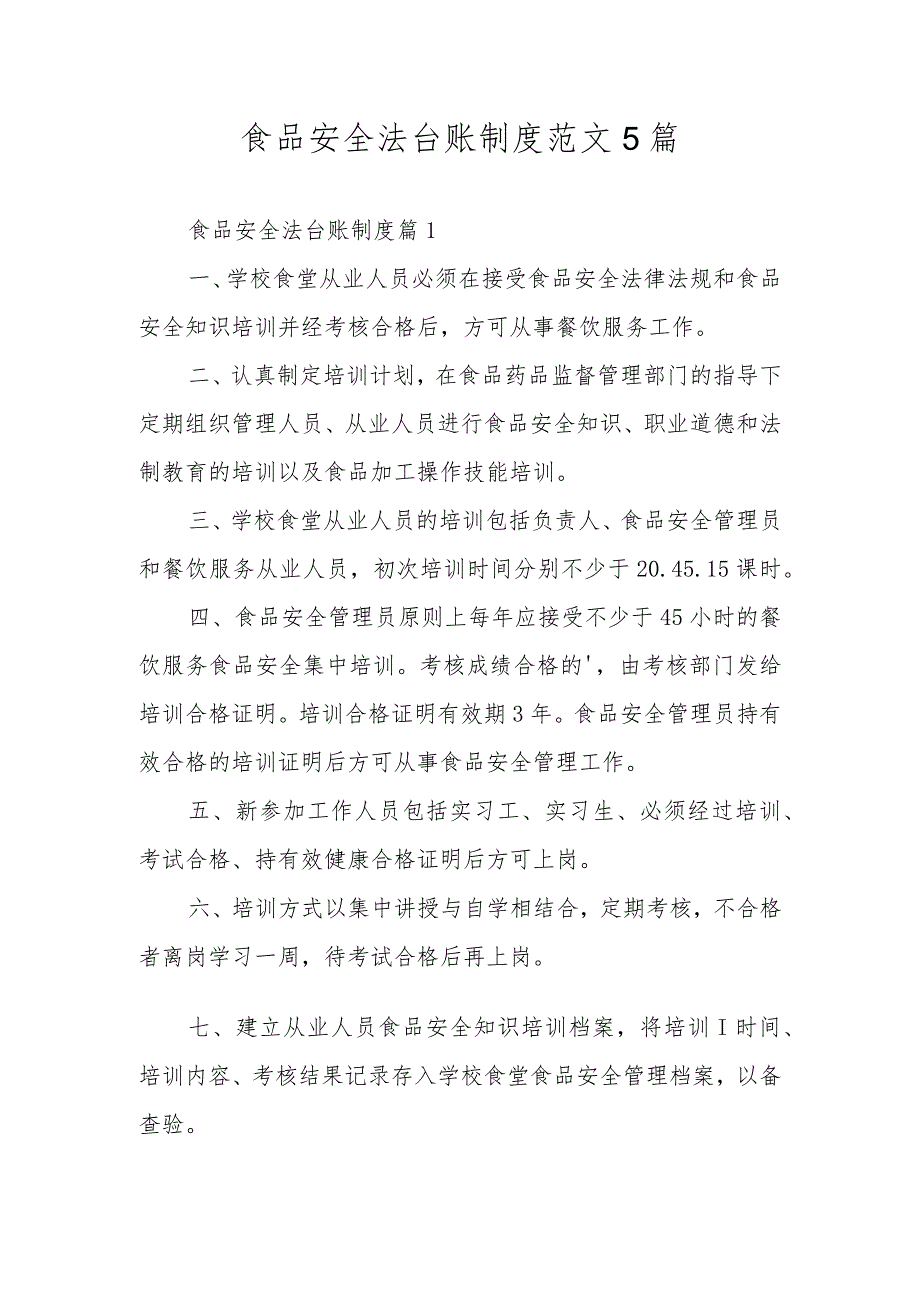 食品安全法台账制度范文5篇
食品安全法台账制度篇1
一、学校食堂从业人员必须在接受食品安全法律法规和食品
安全知识培训并经考核合格后，方可从事餐饮服务工作。
二、认真制定培训计划，在食品药品监督管理部门的指导下
定期组织管理人员、从业人员进行食品安全知识、职业道德和法
制教育的培训以及食品加工操作技能培训。
三、学校食堂从业人员的培训包括负责人、食品安全管理员
和餐饮服务从业人员，初次培训时间分别不少于20.45.15课时。
四、食品安全管理员原则上每年应接受不少于45小时的餐
饮服务食品安全集中培训。考核成绩合格的'，由考核部门发给
培训合格证明。培训合格证明有效期3年。食品安全管理员持有
效合格的培训证明后方可从事食品安全管理工作。
五、新参加工作人员包括实习工、实习生、必须经过培训、
考试合格、持有效健康合格证明后方可上岗。
六、培训方式以集中讲授与自学相结合，定期考核，不合格
者离岗学习一周，待考试合格后再上岗。
七、建立从业人员食品安全知识培训档案，将培训I时间、
培训内容、考核结果记录存入学校食堂食品安全管理档案，以备
查验。